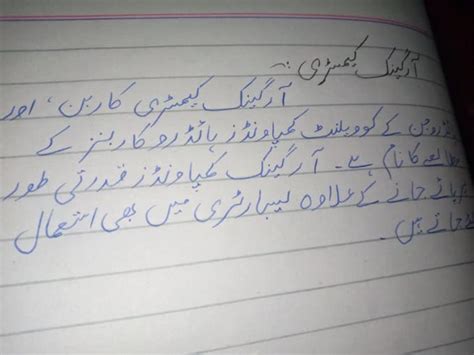 آرگینک کیمسٹری :-
آرگینک کیمسٹری کاربن ، اور
ہائیڈروجن کے کوویلنٹ کمپاونڈز ہائڈروکاربنز کے
مطالعے کا نام ہے۔ آرگینک کمپاونڈز قدرتی طور
پائے جانے کے علاوہ لیبارٹری میں بھی استعمال
جاتے ہیں۔